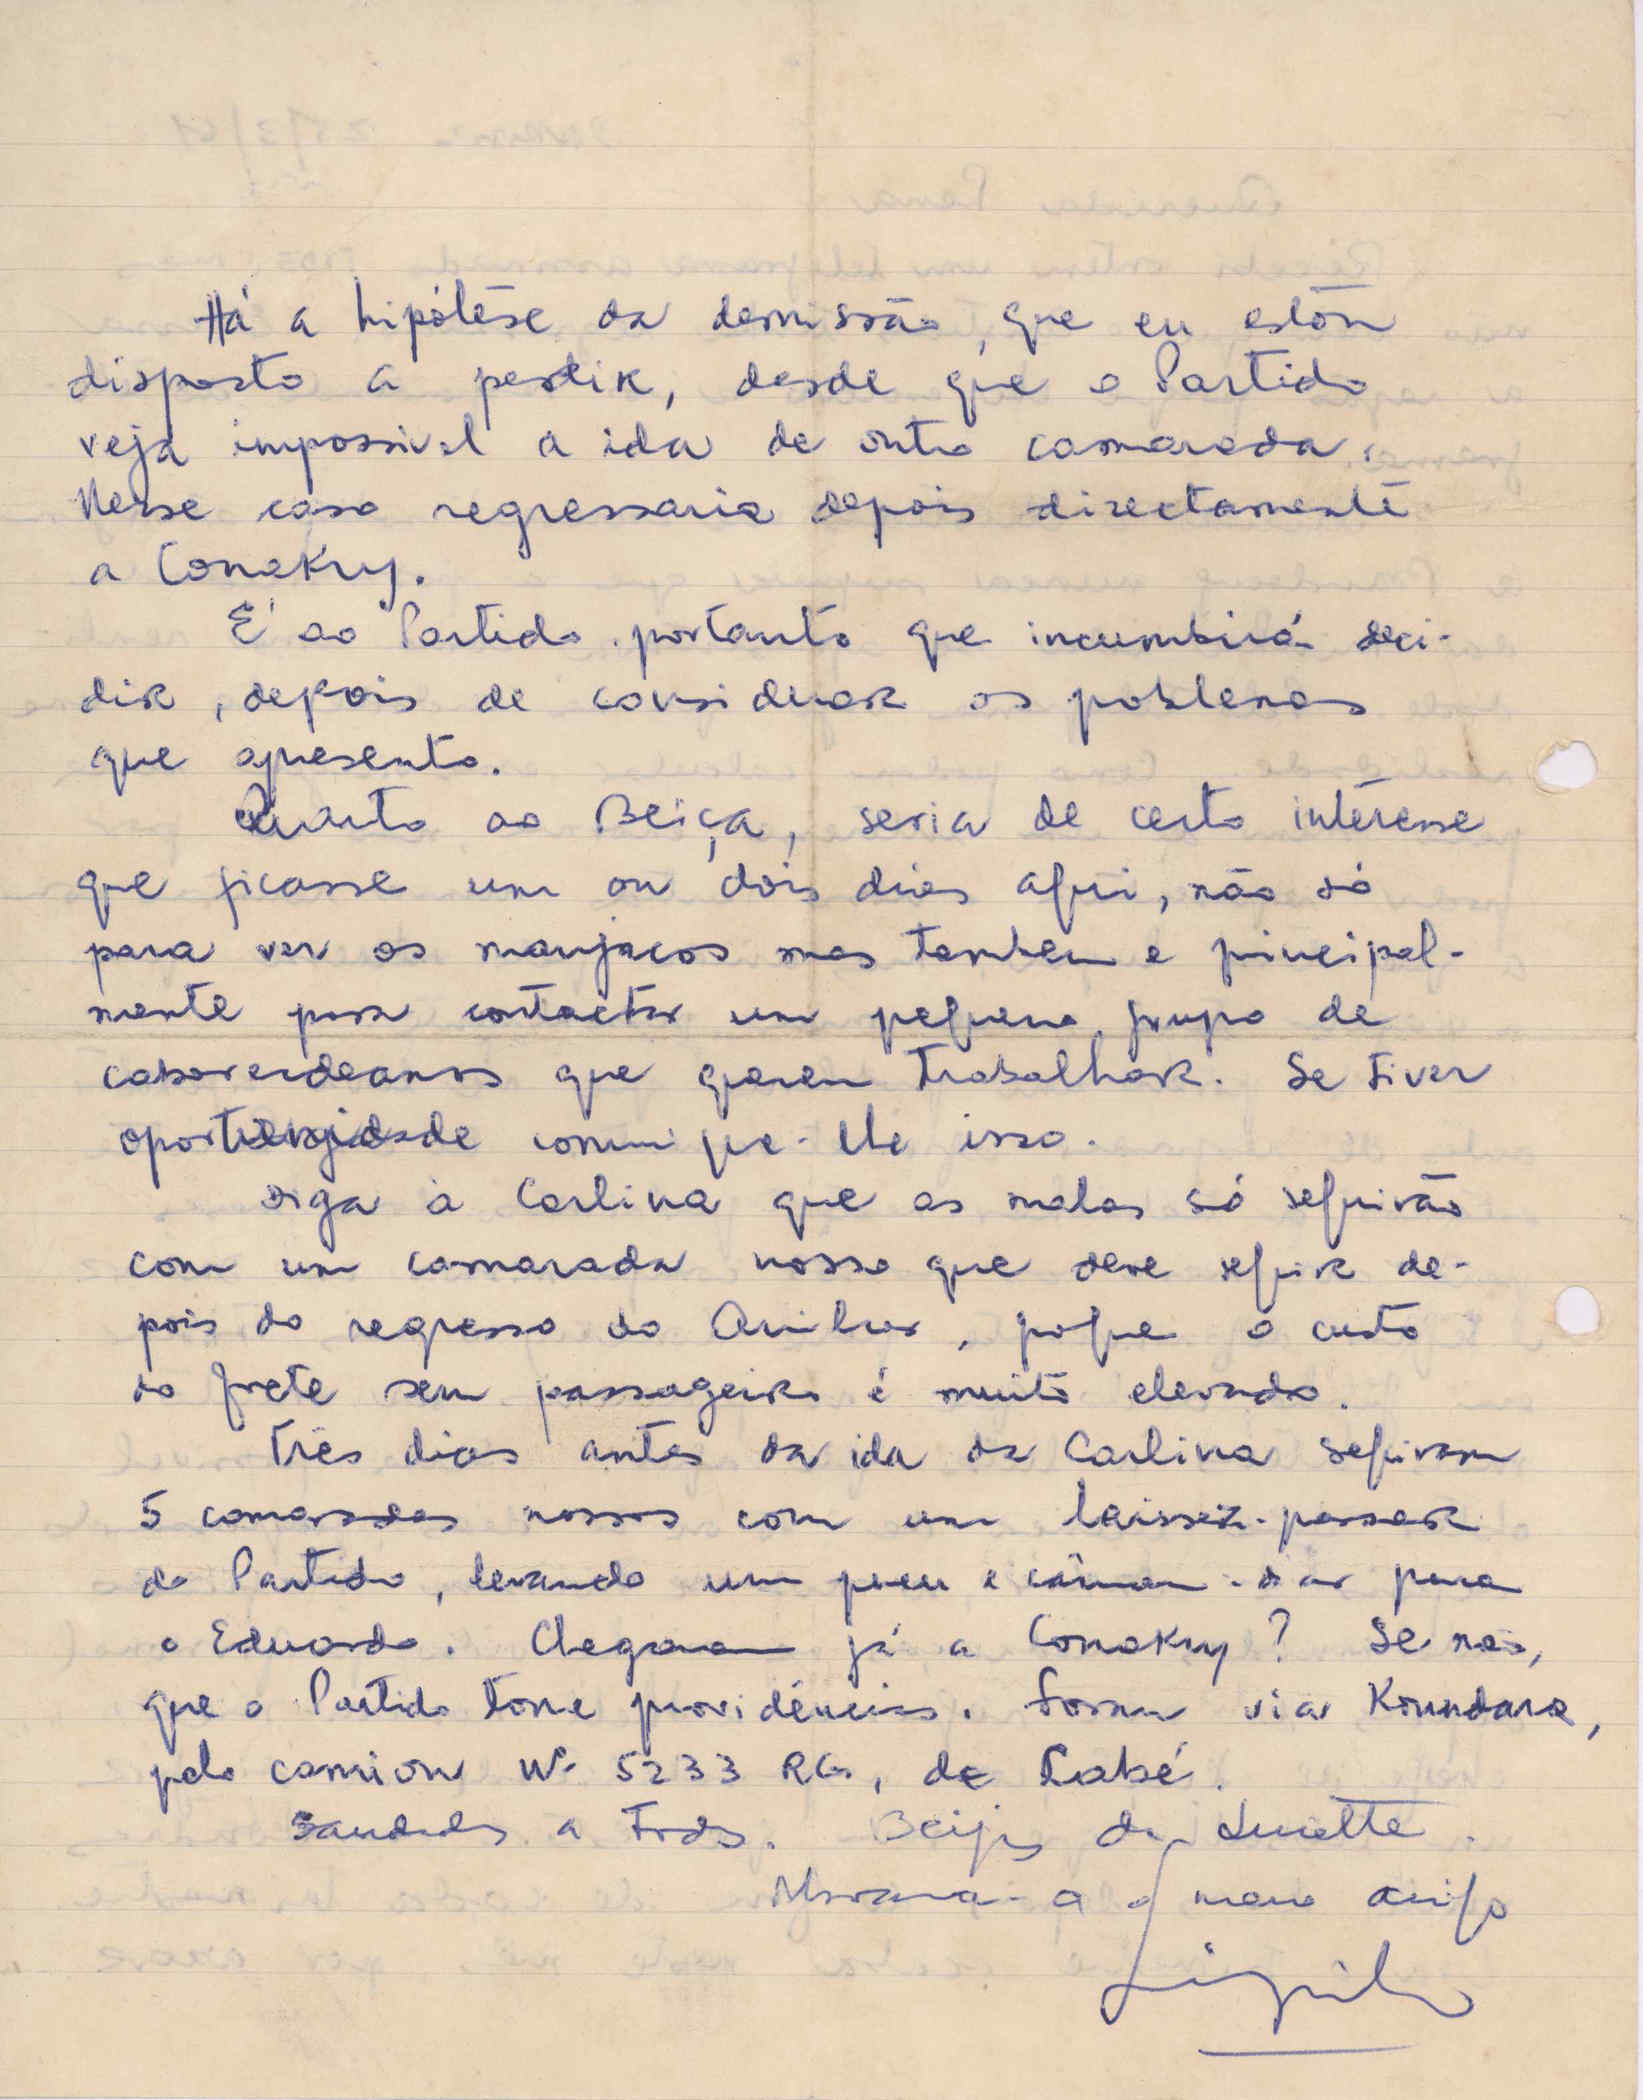 Há a hipótese da demissão, que eu estou
disposto a pedir, desde que o Partido
veja impossivel a ida de outro camarada.
Nesse caso regressaria depois directamente
a Conakry.
É ao Partido portanto que incumbirá deci-
dir, depois de considerar os problemas
que apresento.
Quanto ao Beiça, seria de certo interesse
que ficasse um ou dois dias aqui, não só
para ver os manjacos mas tambem e principal-
mente para contactar um pequeno grupo de
caboverdeanos que querem trabalhar. Se tiver
oportunidade comunique-lhe isso.
Diga à Carlina que as malas só seguirão
com um camarada nosso que deve seguir de-
pois do regresso do Amilcar, porque o custo
do frete sem passageiro é muito elevado.
Três dias antes da ida da Carlina seguiram
5 camaradas nossos com um laissez-passer
do Partido, levando um pneu e câmara-d'ar para
o Eduardo. Chegaram já a Conakry? Se não,
que o Partido tome providências. Foram via Koundara,
pelo camion Nº 5233 RG, de Labé.
Saudades a todos. Beijos da Lucette.
Abraça-a o mano amigo